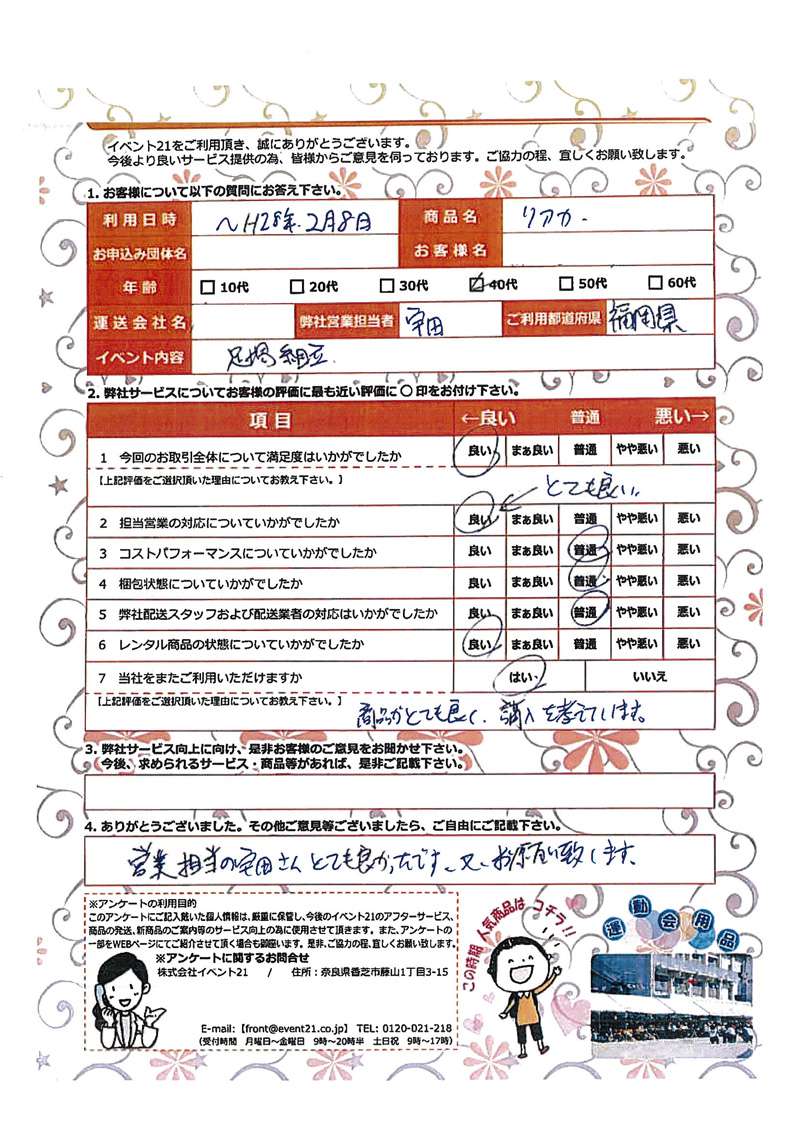 イベント21をご利用頂き、誠にありがとうございます。
今後より良いサービス提供の為、皆様からご意見を伺っております。ご協力の程、宜しくお願い致します。
1. お客様について以下の質問にお答え下さい。
利用日時 〜H28年.2月8日 商品名 リアカー
お申込み団体名 お客様名
年齢 10代 20代 30代 40代 50代 60代
運送会社名 弊社営業担当者 宇田 ご利用都道府県 福岡県
イベント内容 足場組立.
2. 弊社サービスについてお客様の評価に最も近い評価に ○ 印をお付け下さい。
項目 ←良い 普通 悪い→
1 今回のお取引全体について満足度はいかがでしたか 良い まぁ良い 普通 やや悪い 悪い
【上記評価をご選択頂いた理由についてお教え下さい。】
とても良い。
2 担当営業の対応についていかがでしたか 良い まぁ良い 普通 やや悪い 悪い
3 コストパフォーマンスについていかがでしたか 良い まぁ良い 普通 やや悪い 悪い
4 梱包状態についていかがでしたか 良い まぁ良い 普通 やや悪い 悪い
5 弊社配送スタッフおよび配送業者の対応はいかがでしたか 良い まぁ良い 普通 やや悪い 悪い
6 レンタル商品の状態についていかがでしたか 良い まぁ良い 普通 やや悪い 悪い
7 当社をまたご利用いただけますか はい いいえ
【上記評価をご選択頂いた理由についてお教え下さい。】
商品がとても良く、購入を考えています。
3. 弊社サービス向上に向け、是非お客様のご意見をお聞かせ下さい。
今後、求められるサービス・商品等があれば、是非ご記載下さい。
4. ありがとうございました。その他ご意見等ございましたら、ご自由にご記載下さい。
営業担当の宇田さんとても良かったです。又、お願い致します。
※アンケートの利用目的
このアンケートにご記入戴いた個人情報は、厳重に保管し、今後のイベント21のアフターサービス、
商品の発送、新商品のご案内等のサービス向上の為に使用させて頂きます。また、アンケートの
一部をWEBページにてご紹介させて頂く場合も御座います。是非、ご協力の程、宜しくお願い致します。
※アンケートに関するお問合せ
株式会社イベント21 / 住所：奈良県香芝市藤山1丁目3-15
E-mail:【front@event21.co.jp】 TEL: 0120-021-218
（受付時間 月曜日〜金曜日 9時〜20時半 土日祝 9時〜17時）
この時期 人気商品は コチラ!!
運動会用品